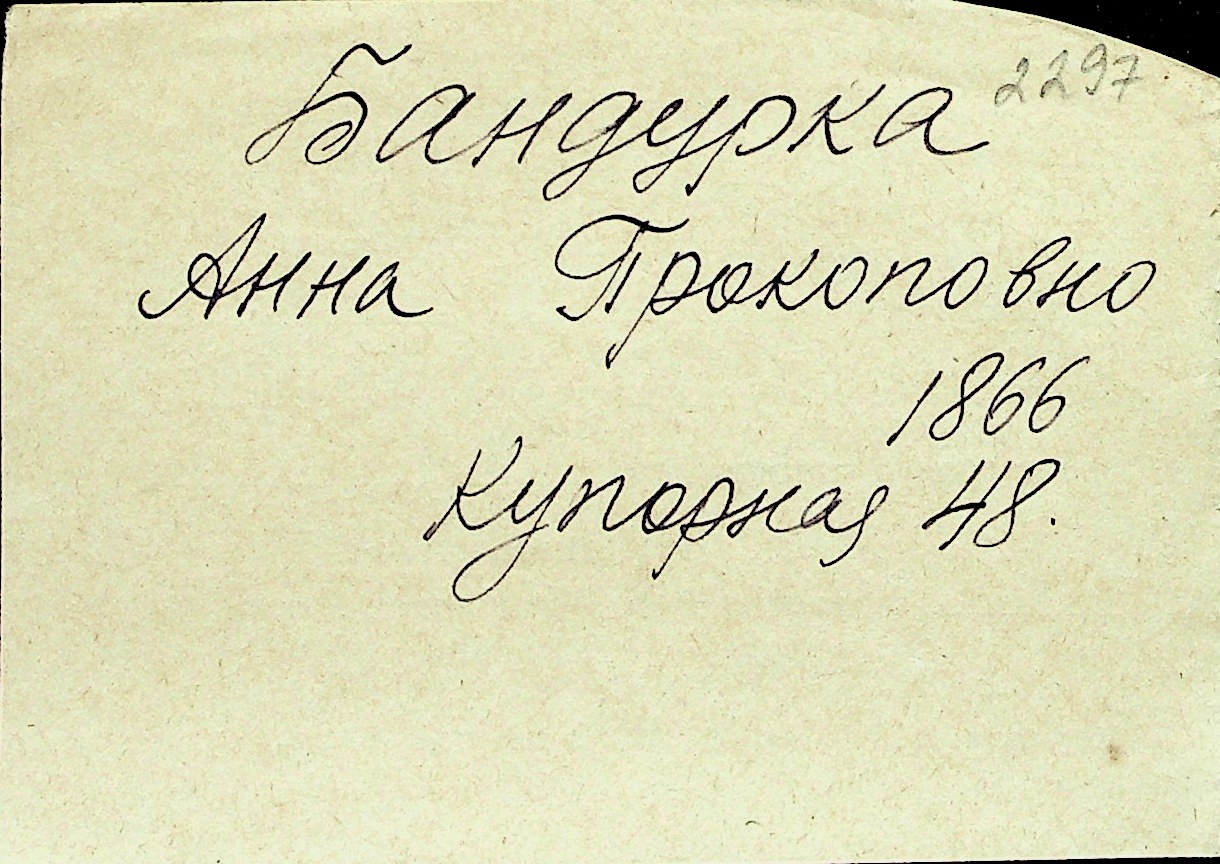 Бандурка 2297
Анна Прокоповно
1866
Купорная 48.